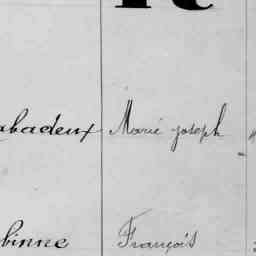 abadeux Marie joseph
binne François